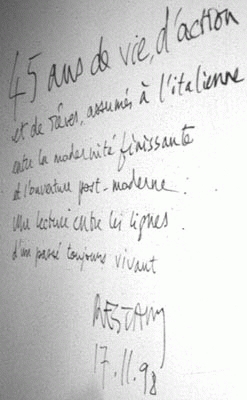 45 ans de vie, d'action
et de rêves, assumés à l'italienne
entre la modernité finissante
et l'ouverture post-moderne :
une lecture entre les lignes
d'un passé toujours vivant
RESTANY
17.11.98